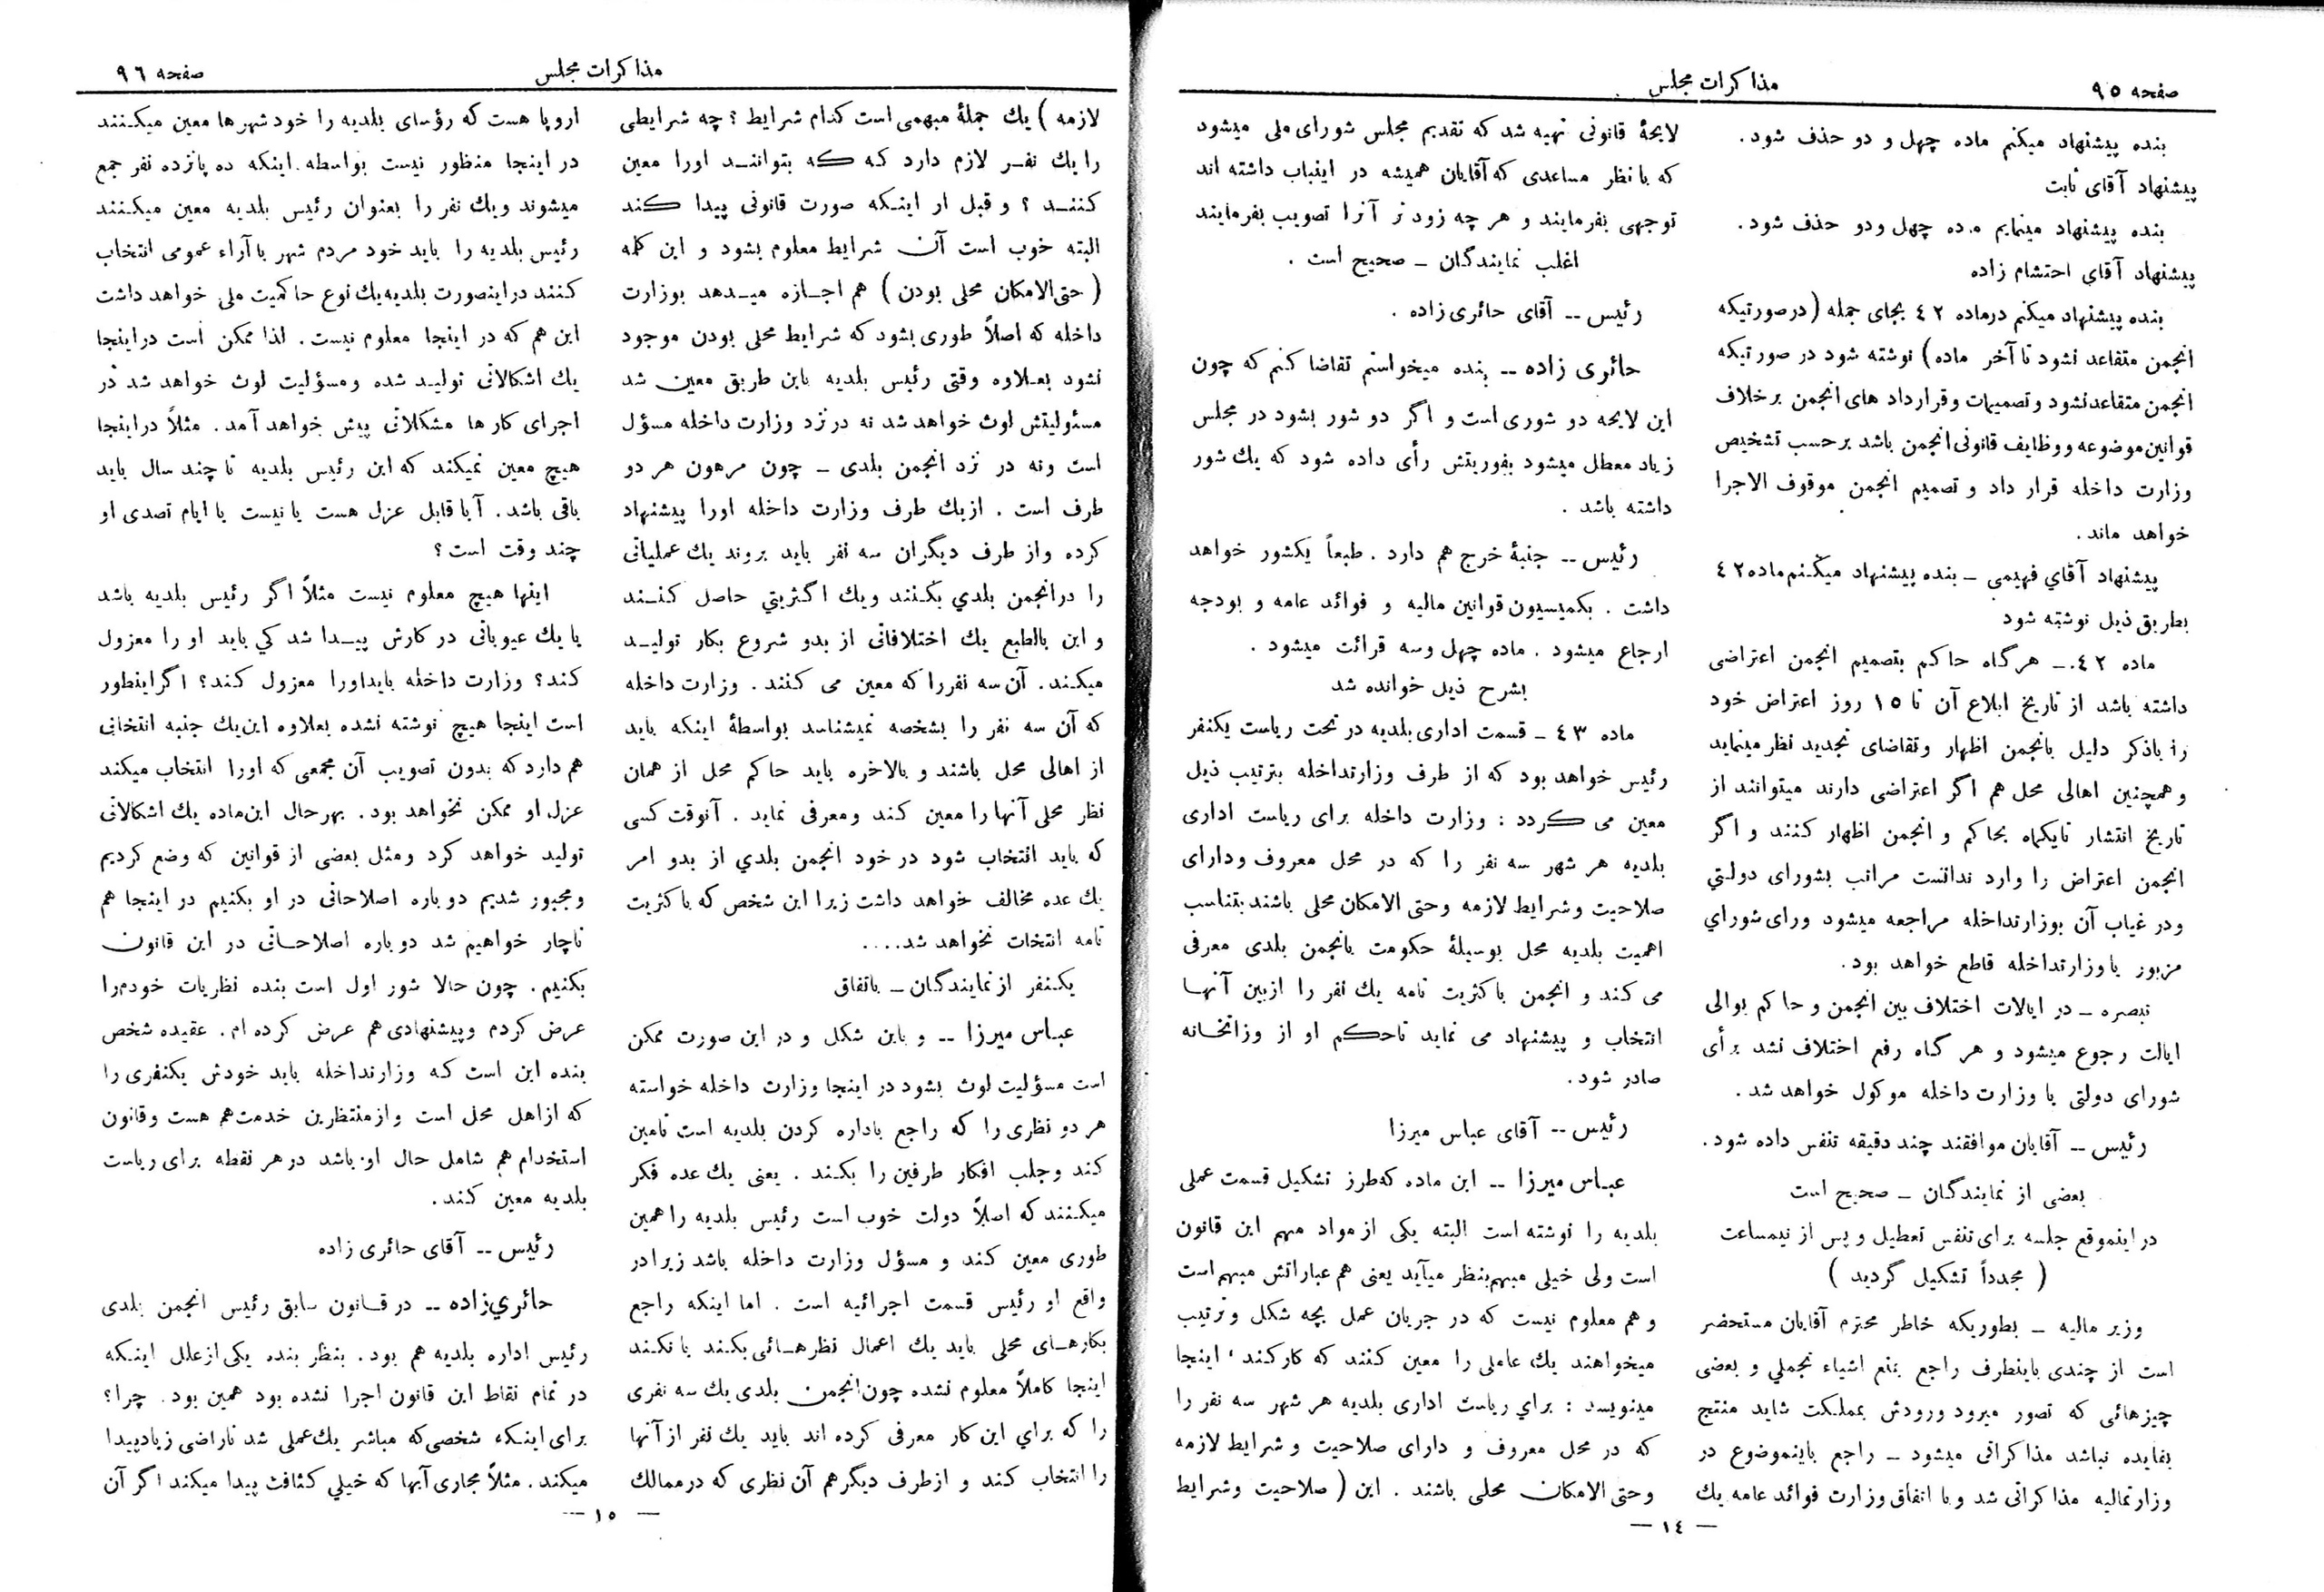 صفحه ۹۵
مذاکرات مجلس
بنده پیشنهاد میکنم ماده چهل و دو حذف شود.
پیشنهاد آقای ثابت
بنده پیشنهاد مینمایم ماده چهل ودو حذف شود.
پیشنهاد آقای احتشام زاده
بنده پیشنهاد میکنم درماده ۴۲ بجای جمله (درصورتیکه
انجمن متقاعد نشود تا آخر ماده) نوشته شود در صورتیکه
انجمن متقاعد نشود وتصمیمات وقرارداد های انجمن برخلاف
قوانین موضوعه ووظایف قانونی انجمن باشد برحسب تشخیص
وزارت داخله قرار داد و تصمیم انجمن موقوف الاجرا
خواهد ماند.
پیشنهاد آقاي فهیمی ـ بنده پیشنهاد میکنم ماده ۴۲
بطریق ذیل نوشته شود
ماده ۴۲ ـ هرگاه حاکم بتصمیم انجمن اعتراضی
داشته باشد از تاریخ ابلاغ آن تا ۱۵ روز اعتراض خود
را باذکر دلیل بانجمن اظهار وتقاضای تجدید نظر مینماید
وهمچنین اهالی محل هم اگر اعتراضی دارند میتوانند از
تاریخ انتشار تایکماه بحاکم و انجمن اظهار کنند و اگر
انجمن اعتراض را وارد ندانست مراتب بشورای دولتي
ودر غیاب آن بوزارتداخله مراجعه میشود ورای شوراي
مزبور یا وزارتداخله قاطع خواهد بود.
تبصره ـ در ایالات اختلاف بین انجمن و حاکم بوالی
ایالت رجوع میشود و هر گاه رفع اختلاف نشد برأی
شورای دولتی یا وزارت داخله موکول خواهد شد.
رئیس -- آقایان موافقند چند دقیقه تنفس داده شود.
بعضی از نمایندگان ـ صحیح است
در اینموقع جلسه برای تنفس تعطیل و پس از نیمساعت
( مجدداً تشکیل گردید )
وزیر مالیه ـ بطوریکه خاطر محترم آقایان مستحضر
است از چندی باینطرف راجع بمنع اشیاء تجملي و بعضی
چیزهائی که تصور میرود ورودش بمملکت شاید منتج
بفایده نباشد مذاکراتی میشود ـ راجع باینموضوع در
وزارتمالیه مذاکراتی شد وبا اتفاق وزارت فوائد عامه یك
لایحهٔ قانونی تهیه شد که تقدیم مجلس شورای ملی میشود
که با نظر مساعدی که آقایان همیشه در اینباب داشته اند
توجهی بفرمایند و هر چه زود تر آنرا تصویب بفرمایند
اغلب نمایندگان ـ صحیح است .
رئیس -- آقای حائری زاده .
حائری زاده -- بنده میخواستم تقاضا کنم که چون
این لایحه دو شوری است و اگر دو شور بشود در مجلس
زیاد معطل میشود بفوریتش رأی داده شود که یك شور
داشته باشد .
رئیس -- جنبهٔ خرج هم دارد . طبعاً یکشور خواهد
داشت . بکمیسیون قوانین مالیه و فوائد عامه و بودجه
ارجاع میشود . ماده چهل وسه قرائت میشود .
بشرح ذیل خوانده شد
ماده ۴۳ ـ قسمت اداری بلدیه در تحت ریاست یکنفر
رئیس خواهد بود که از طرف وزارتداخله بترتیب ذیل
معین می گردد : وزارت داخله برای ریاست اداری
بلدیه هر شهر سه نفر را که در محل معروف ودارای
صلاحیت و شرایط لازمه وحتی الامکان محلی باشند بتناسب
اهمیت بلدیه محل بوسیلهٔ حکومت بانجمن بلدی معرفی
می کند و انجمن باکثریت تامه یك نفر را ازبین آنها
انتخاب و پیشنهاد می نماید تاحکم او از وزاتخانه
صادر شود.
رئیس -- آقای عباس میرزا
عباس میرزا -- این ماده که طرز تشکیل قسمت عملی
بلدیه را نوشته است البته یکی از مواد مهم این قانون
است ولی خیلی مبهم بنظر میآید یعنی هم عباراتش مبهم است
و هم معلوم نیست که در جریان عمل بچه شکل و ترتیب
میخواهند یك عاملی را معین کنند که کارکند ، اینجا
مینویسد : براي ریاست اداری بلدیه هر شهر سه نفر را
که در محل معروف و دارای صلاحیت و شرایط لازمه
وحتی الامکان محلی باشند . این ( صلاحیت وشرایط
— ۱۴ —
مذاکرات مجلس
صفحه ۹۶
لازمه ) یك جملهٔ مبهمی است کدام شرایط ؟ چه شرایطی
را یك نفر لازم دارد که که بتوانند اورا معین
کنند ؟ و قبل ار اینکه صورت قانونی پیدا کند
البته خوب است آن شرایط معلوم بشود و این کله
( حتی الامکان محلی بودن ) هم اجازه میدهد بوزارت
داخله که اصلاً طوری بشود که شرایط محلی بودن موجود
نشود بعلاوه وقتی رئیس بلدیه باین طریق معین شد
مسئولیتش لوث خواهد شد نه در نزد وزارت داخله مسؤل
است ونه در نزد انجمن بلدی ـ چون مرهون هر دو
طرف است . ازیك طرف وزارت داخله اورا پیشنهاد
کرده واز طرف دیگران سه نفر باید بروند یك عملیاتی
را در انجمن بلدي بکنند ویك اکثریتي حاصل کنند
و این بالطبع یك اختلافاتی از بدو شروع بکار تولید
میکند. آن سه نفررا که معین می کنند . وزارت داخله
که آن سه نفر را بشخصه نمیشناسد بواسطهٔ اینکه باید
از اهالی محل باشند و بالاخره باید حاکم محل از همان
نظر محلی آنها را معین کند ومعرفی نماید . آنوقت کسی
که باید انتخاب شود در خود انجمن بلدي از بدو امر
یك عده مخالف خواهد داشت زیرا این شخص که باکثریت
تامه انتخات نخواهد شد....
یکنفر از نمایندگان ـ باتفاق
عباس میرزا -- و باین شکل و در این صورت ممکن
است مسؤلیت لوث بشود در اینجا وزارت داخله خواسته
هر دو نظری را که راجع باداره کردن بلدیه است تامین
کند وجلب افکار طرفین را بکند . یعنی یك عده فکر
میکنند که اصلاً دولت خوب است رئیس بلدیه را همین
طوری معین کند و مسؤل وزارت داخله باشد زیرا در
واقع او رئیس قسمت اجرائیه است . اما اینکه راجع
بکارهای محلی باید یك اعمال نظرهائی بکند یا نکند
اینجا کاملاً معلوم نشده چون انجمن بلدی یك سه نفری
را که براي این کار معرفی کرده اند باید یك نفر از آنها
را انتخاب کند و ازطرف دیگر هم آن نظری که در ممالك
اروپا هست که رؤسای بلدیه را خود شهرها معین میکنند
در اینجا منظور نیست بواسطه اینکه ده پانزده نفر جمع
میشوند ویك نفر را بعنوان رئیس بلدیه معین میکنند
رئیس بلدیه را باید خود مردم شهر باآراء عمومی انتخاب
کنند دراینصورت بلدیه یك نوع حاکمیت ملی خواهد داشت
این هم که در اینجا معلوم نیست . لذا ممکن است دراینجا
یك اشکالاتی تولید شده ومسؤلیت لوث خواهد شد در
اجرای کار ها مشکلاتی پیش خواهد آمد . مثلاً دراینجا
هیچ معین نمیکند که این رئیس بلدیه تا چند سال باید
باقی باشد . آیا قابل عزل هست یا نیست یا ایام تصدی او
چند وقت است ؟
اینها هیچ معلوم نیست مثلاً اگر رئیس بلدیه باشد
یا یك عیوباتی در کارش پیدا شد کي باید او را معزول
کند؟ وزارت داخله بایداورا معزول کند؟ اگراینطور
است اینجا هیچ نوشته نشده بعلاوه این یك جنبه انتخابی
هم دارد که بدون تصویب آن مجمعی که اورا انتخاب میکند
عزل او ممکن نخواهد بود. بهرحال این ماده یك اشکالاتی
تولید خواهد کرد ومثل بعضی از قوانین که وضع کردیم
ومجبور شدیم دوباره اصلاحاتی در او بکنیم در اینجا هم
ناچار خواهیم شد دوباره اصلاحاتی در این قانون
بکنیم. چون حالا شور اول است بنده نظریات خودم را
عرض کردم وپیشنهادی هم عرض کرده ام. عقیده شخص
بنده این است که وزارتداخله باید خودش یکنفری را
که ازاهل محل است وازمنتظرین خدمت هم هست وقانون
استخدام هم شامل حال او باشد در هر نقطه برای ریاست
بلدیه معین کند.
رئیس -- آقای حائری زاده
حائري زاده -- در قانون سابق رئیس انجمن بلدی
رئیس اداره بلدیه هم بود. بنظر بنده یکی ازعلل اینکه
در تمام نقاط این قانون اجرا نشده بود همین بود. چرا؟
برای اینکه شخصی که مباشر یك عملی شد ناراضی زیاد پیدا
میکند . مثلاً مجاری آبها که خیلي کثافت پیدا میکند اگر آن
— ۱۵ —